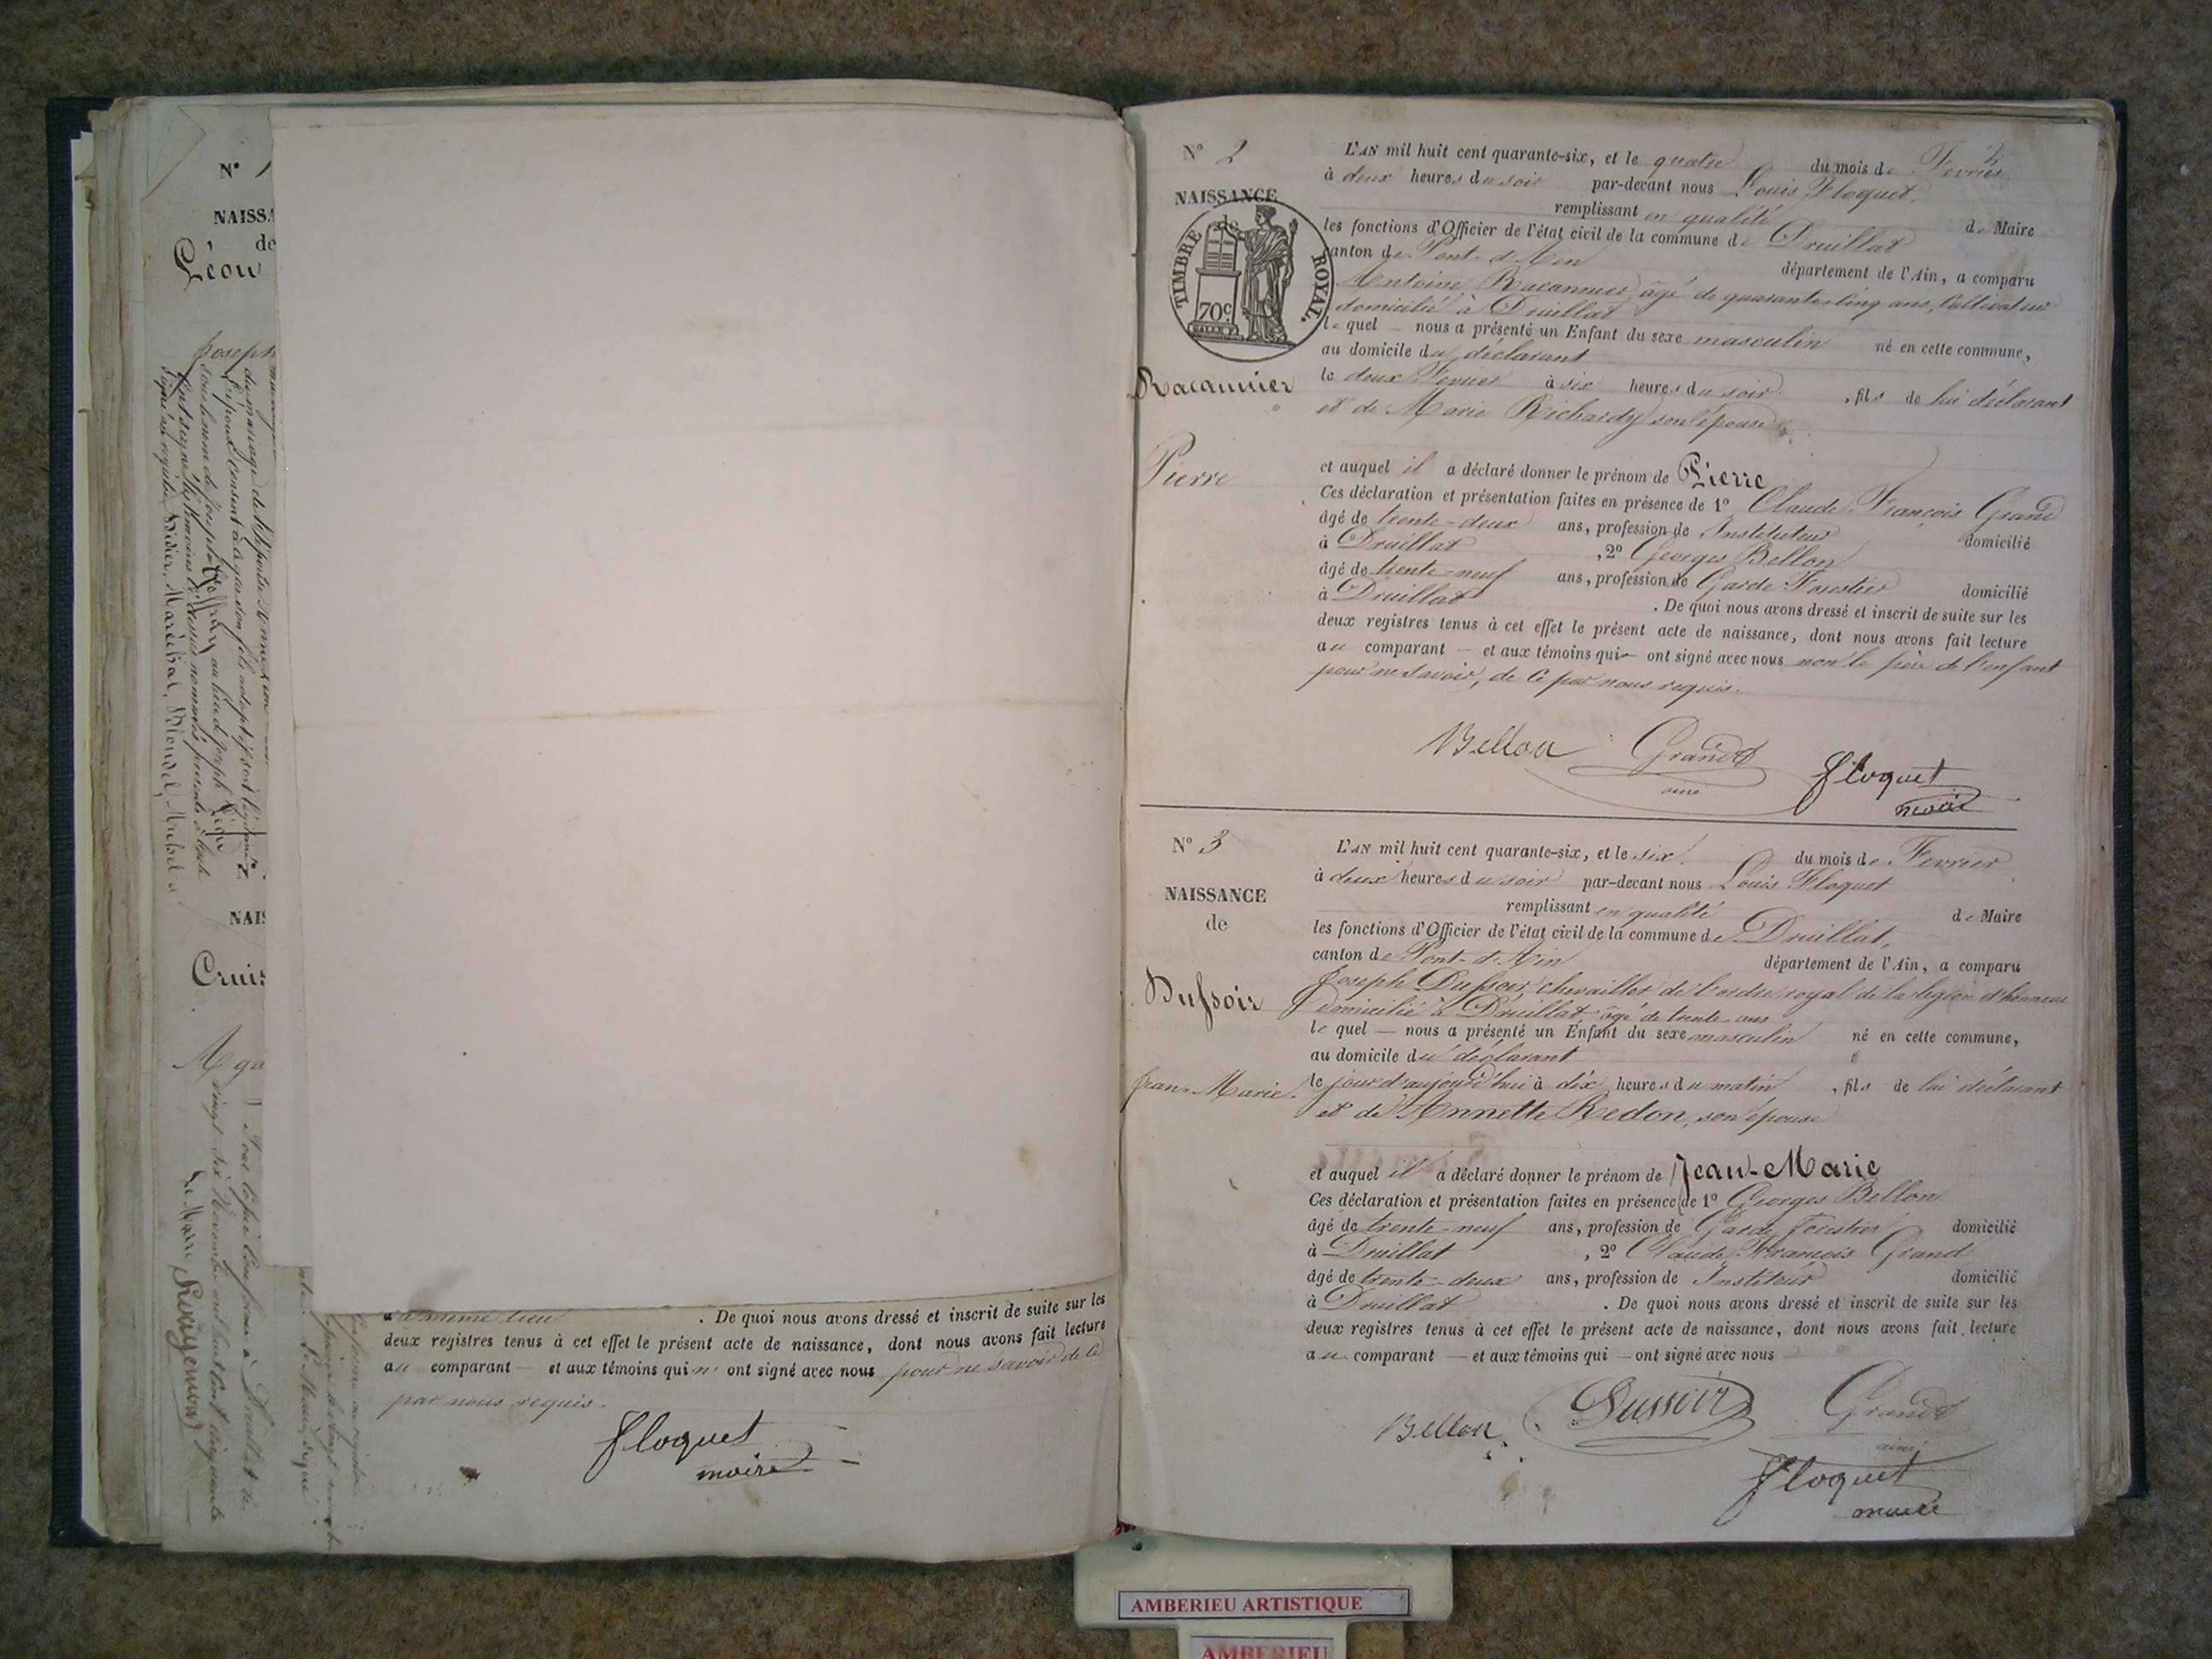 N° 1
NAISSA
de
Léon
Joseph
NAIS
Cruis
Le Maire Rougemont
a même lieu . De quoi nous avons dressé et inscrit de suite sur les
deux registres tenus à cet effet le présent acte de naissance, dont nous avons fait lecture
au comparant — et aux témoins qui n' ont signé avec nous pour ne savoir de ce
par nous requis.
Floquet
maire
N° 2
NAISSANCE
de
TIMBRE ROYAL.
70c
Racannier
Pierre
L'AN mil huit cent quarante-six, et le quatre du mois de Fevrier
à deux heures du soir par-devant nous Louis Floquet,
remplissant en qualité de Maire
les fonctions d'Officier de l'état civil de la commune de Druillat
canton de Pont-d'Ain département de l'Ain, a comparu
Antoine Racannier, âgé de quarante cinq ans, Cultivateur
domicilié à Druillat
le quel — nous a présenté un Enfant du sexe masculin né en cette commune,
au domicile du déclarant
le deux Fevrier à six heures du soir , fils de lui déclarant
et de Marie Richardy son épouse
et auquel il a déclaré donner le prénom de Pierre
Ces déclaration et présentation faites en présence de 1° Claude François Grand
âgé de trente-deux ans, profession de Instituteur domicilié
à Druillat , 2° Georges Bellon
âgé de trente-neuf ans, profession de Garde Forestier domicilié
à Druillat . De quoi nous avons dressé et inscrit de suite sur les
deux registres tenus à cet effet le présent acte de naissance, dont nous avons fait lecture
au comparant — et aux témoins qui — ont signé avec nous non le père de l'enfant
pour ne savoir, de ce par nous requis.
Bellon Grand Floquet
ainé maire
N° 3
NAISSANCE
de
Dussoir
Jean-Marie.
L'AN mil huit cent quarante-six, et le six du mois de Fevrier
à deux heures du soir par-devant nous Louis Floquet
remplissant en qualité de Maire
les fonctions d'Officier de l'état civil de la commune de Druillat,
canton de Pont-d'Ain département de l'Ain, a comparu
Joseph Dussoir, chevaillier de l'ordre royal de la légion d'honneur
domicilié à Druillat âgé de trente ans
le quel — nous a présenté un Enfant du sexe masculin né en cette commune,
au domicile du déclarant
le jour d'aujourd'hui à dix heures du matin , fils de lui déclarant
et de Annette Redon, son épouse
et auquel il a déclaré donner le prénom de Jean-Marie
Ces déclaration et présentation faites en présence de 1° Georges Bellon
âgé de trente-neuf ans, profession de Garde forestier domicilié
à Druillat , 2° Claude François Grand
âgé de trente-deux ans, profession de Instituteur domicilié
à Druillat . De quoi nous avons dressé et inscrit de suite sur les
deux registres tenus à cet effet le présent acte de naissance, dont nous avons fait lecture
au comparant — et aux témoins qui — ont signé avec nous
Bellon Dussoir Grand
ainé
Floquet
maire
AMBERIEU ARTISTIQUE
AMBERIEU